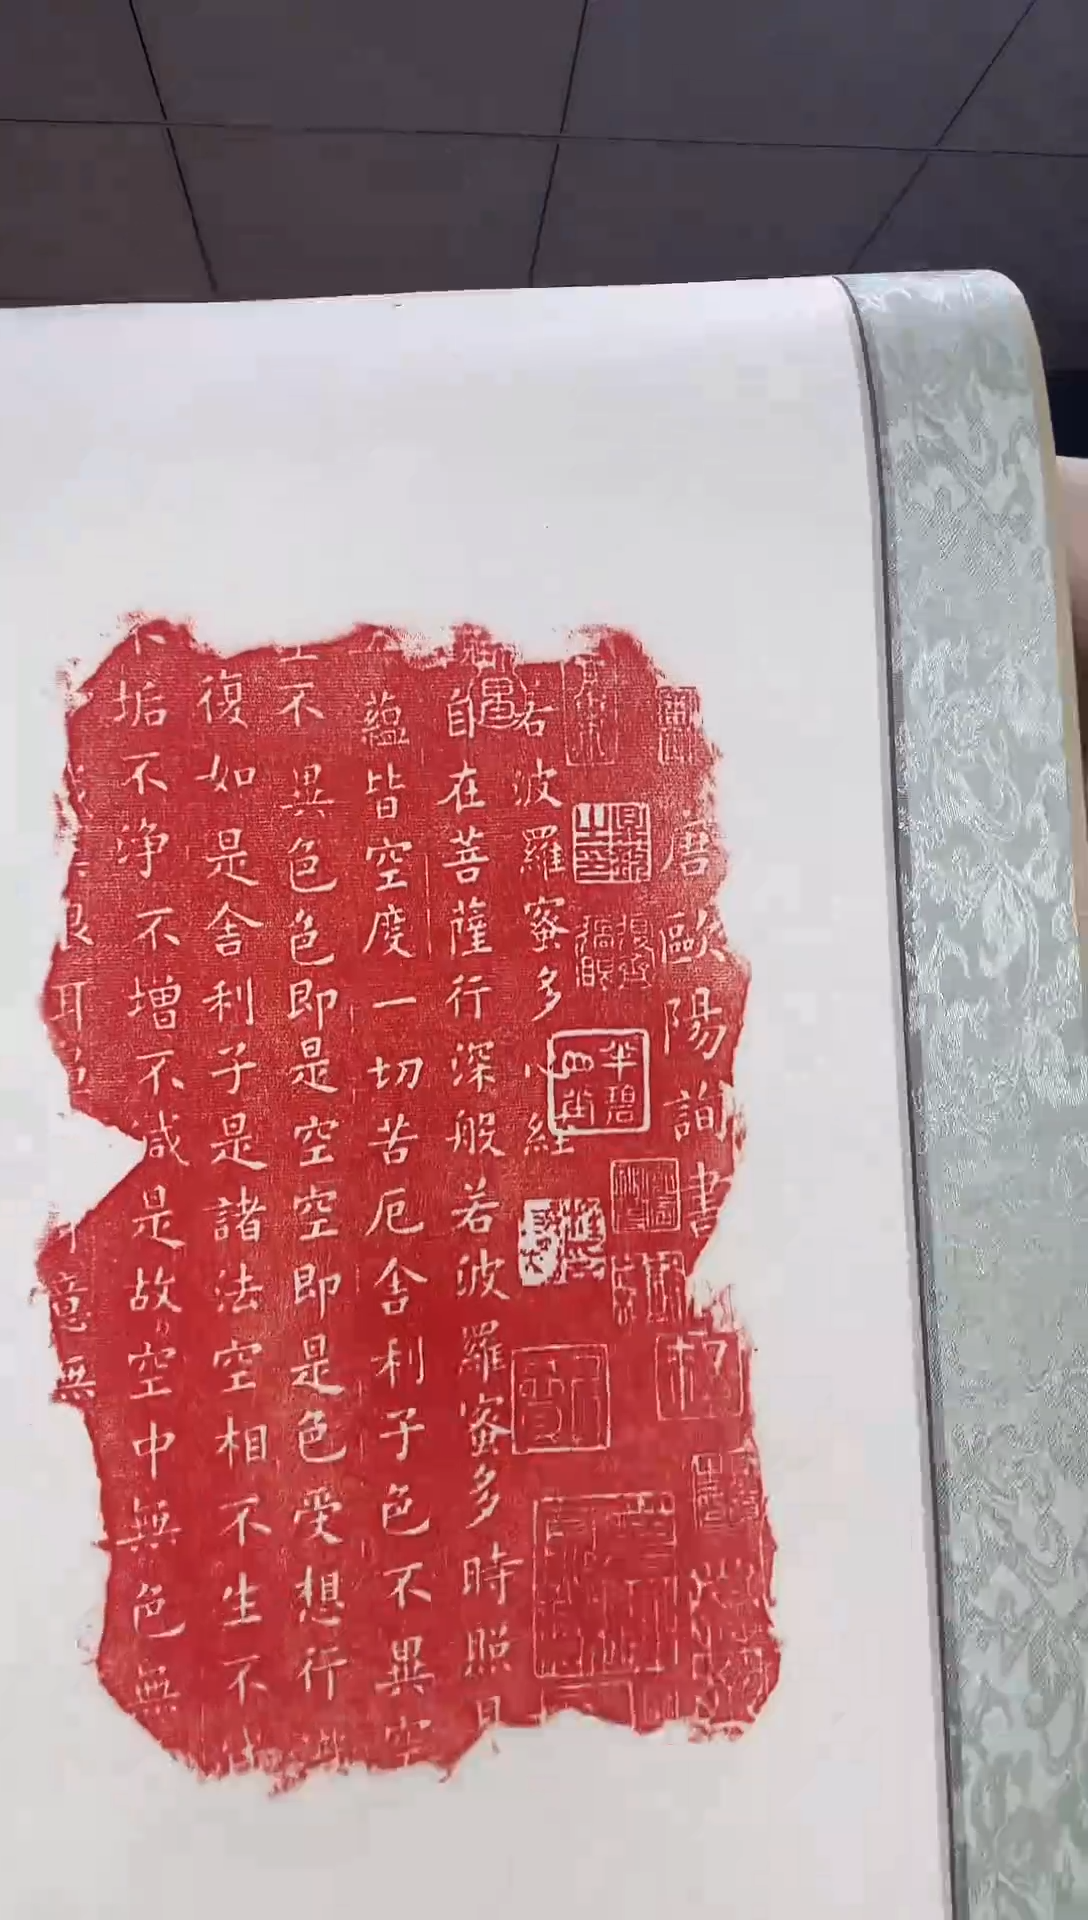 唐歐陽詢書
若波羅蜜多心經
自在菩薩行深般若波羅蜜多時照見
蘊皆空度一切苦厄舍利子色不異空
不異色色即是空空即是色受想行識
復如是舍利子是諸法空相不生不
不垢不淨不增不減是故空中無色無
眼耳
意無
半碧